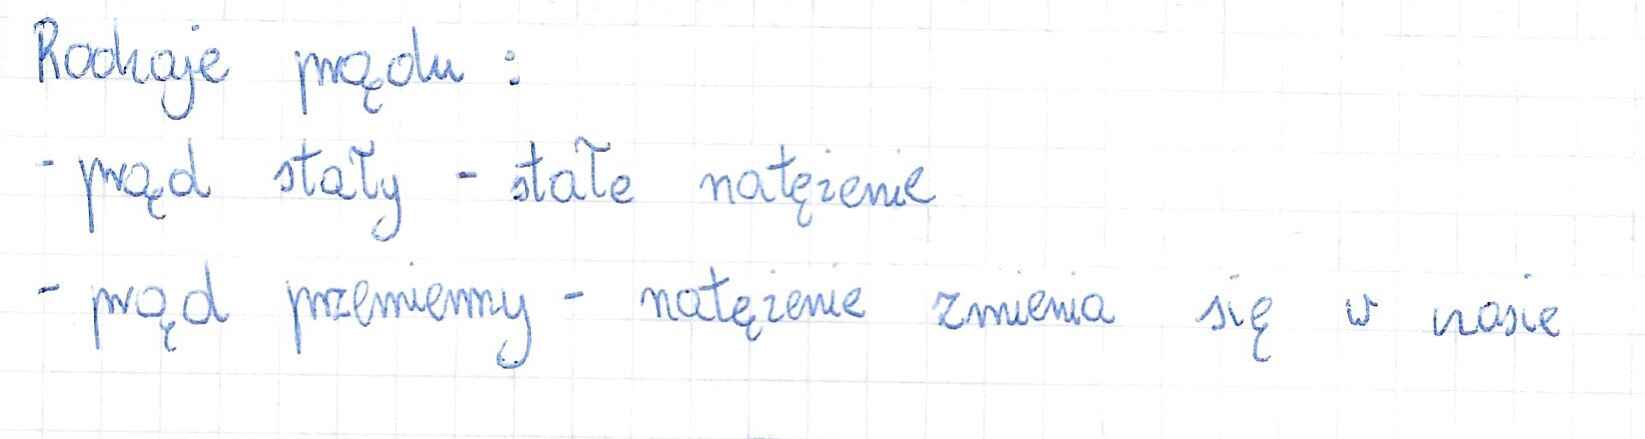 Rodzaje prądu :
- prąd stały - stałe natężenie
- prąd przemienny - natężenie zmienia się w czasie